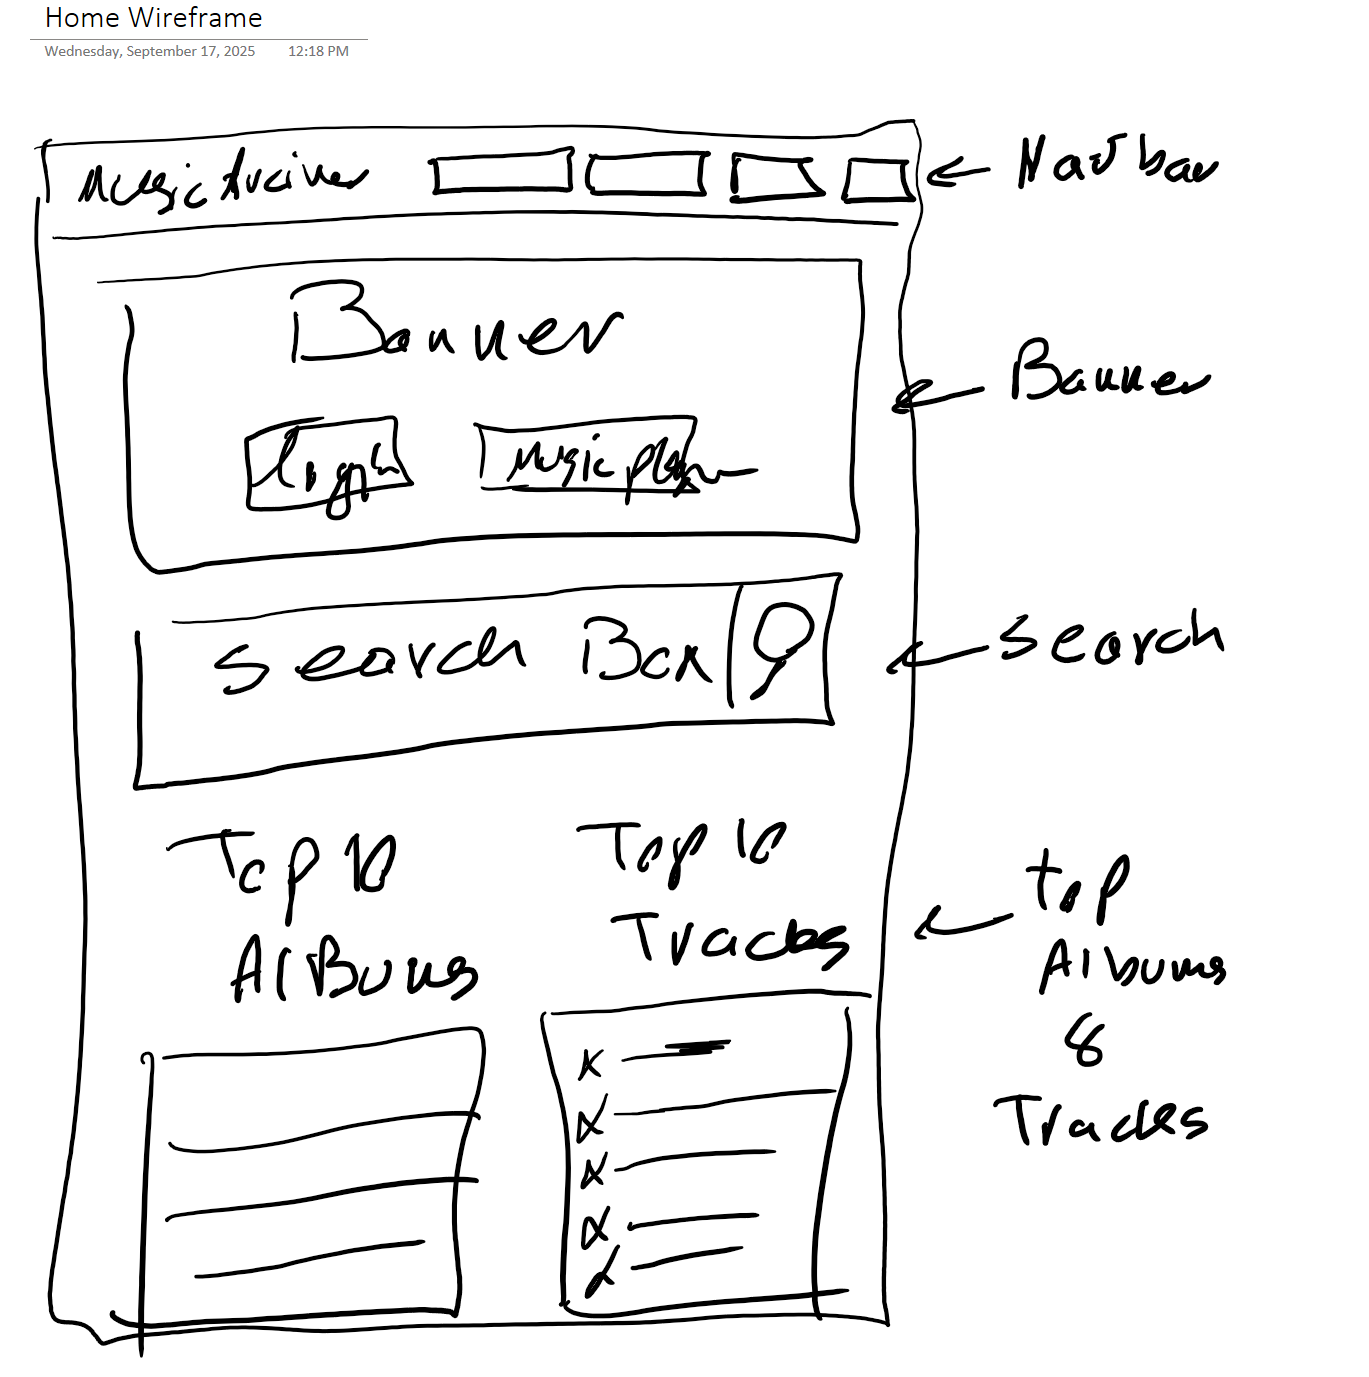 Home Wireframe
Wednesday, September 17, 2025 12:18 PM
Music Archiver
Navbar
Banner
Login Music player
Banner
Search Box
search
Top 10 Albums
Top 10 Tracks
top
Albums
&
Tracks